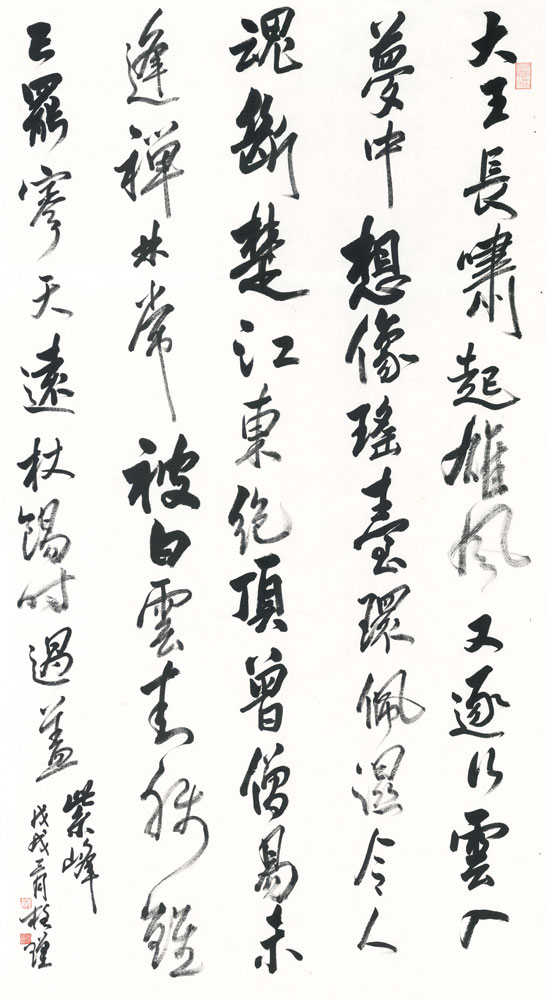 大王長嘯起雄風又逐行雲入
夢中想像瑤臺環佩濕令人
魂斷楚江東絕頂曾僧易未
逢禪林常被白雲封殘鐘
已罷寥天遠杖錫時過蓋
紫峰
戊戌 月